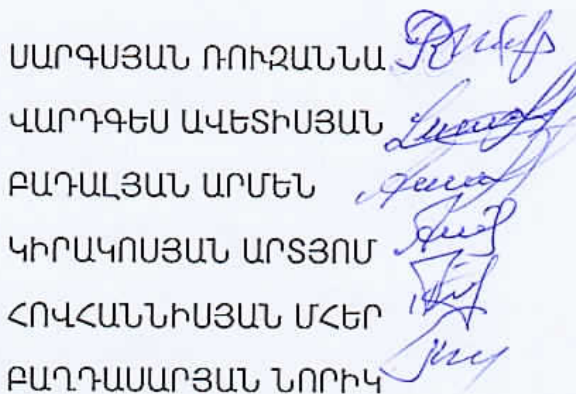 ՍԱՐԳՍՅԱՆ ՌՈՒԶԱՆՆԱ
ՎԱՐԴԳԵՍ ԱՎԵՏԻՍՅԱՆ
ԲԱԴԱԼՅԱՆ ԱՐՄԵՆ
ԿԻՐԱԿՈՍՅԱՆ ԱՐՏՅՈՄ
ՀՈՎՀԱՆՆԻՍՅԱՆ ՄՀԵՐ
ԲԱՂԴԱՍԱՐՅԱՆ ՆՈՐԻԿ